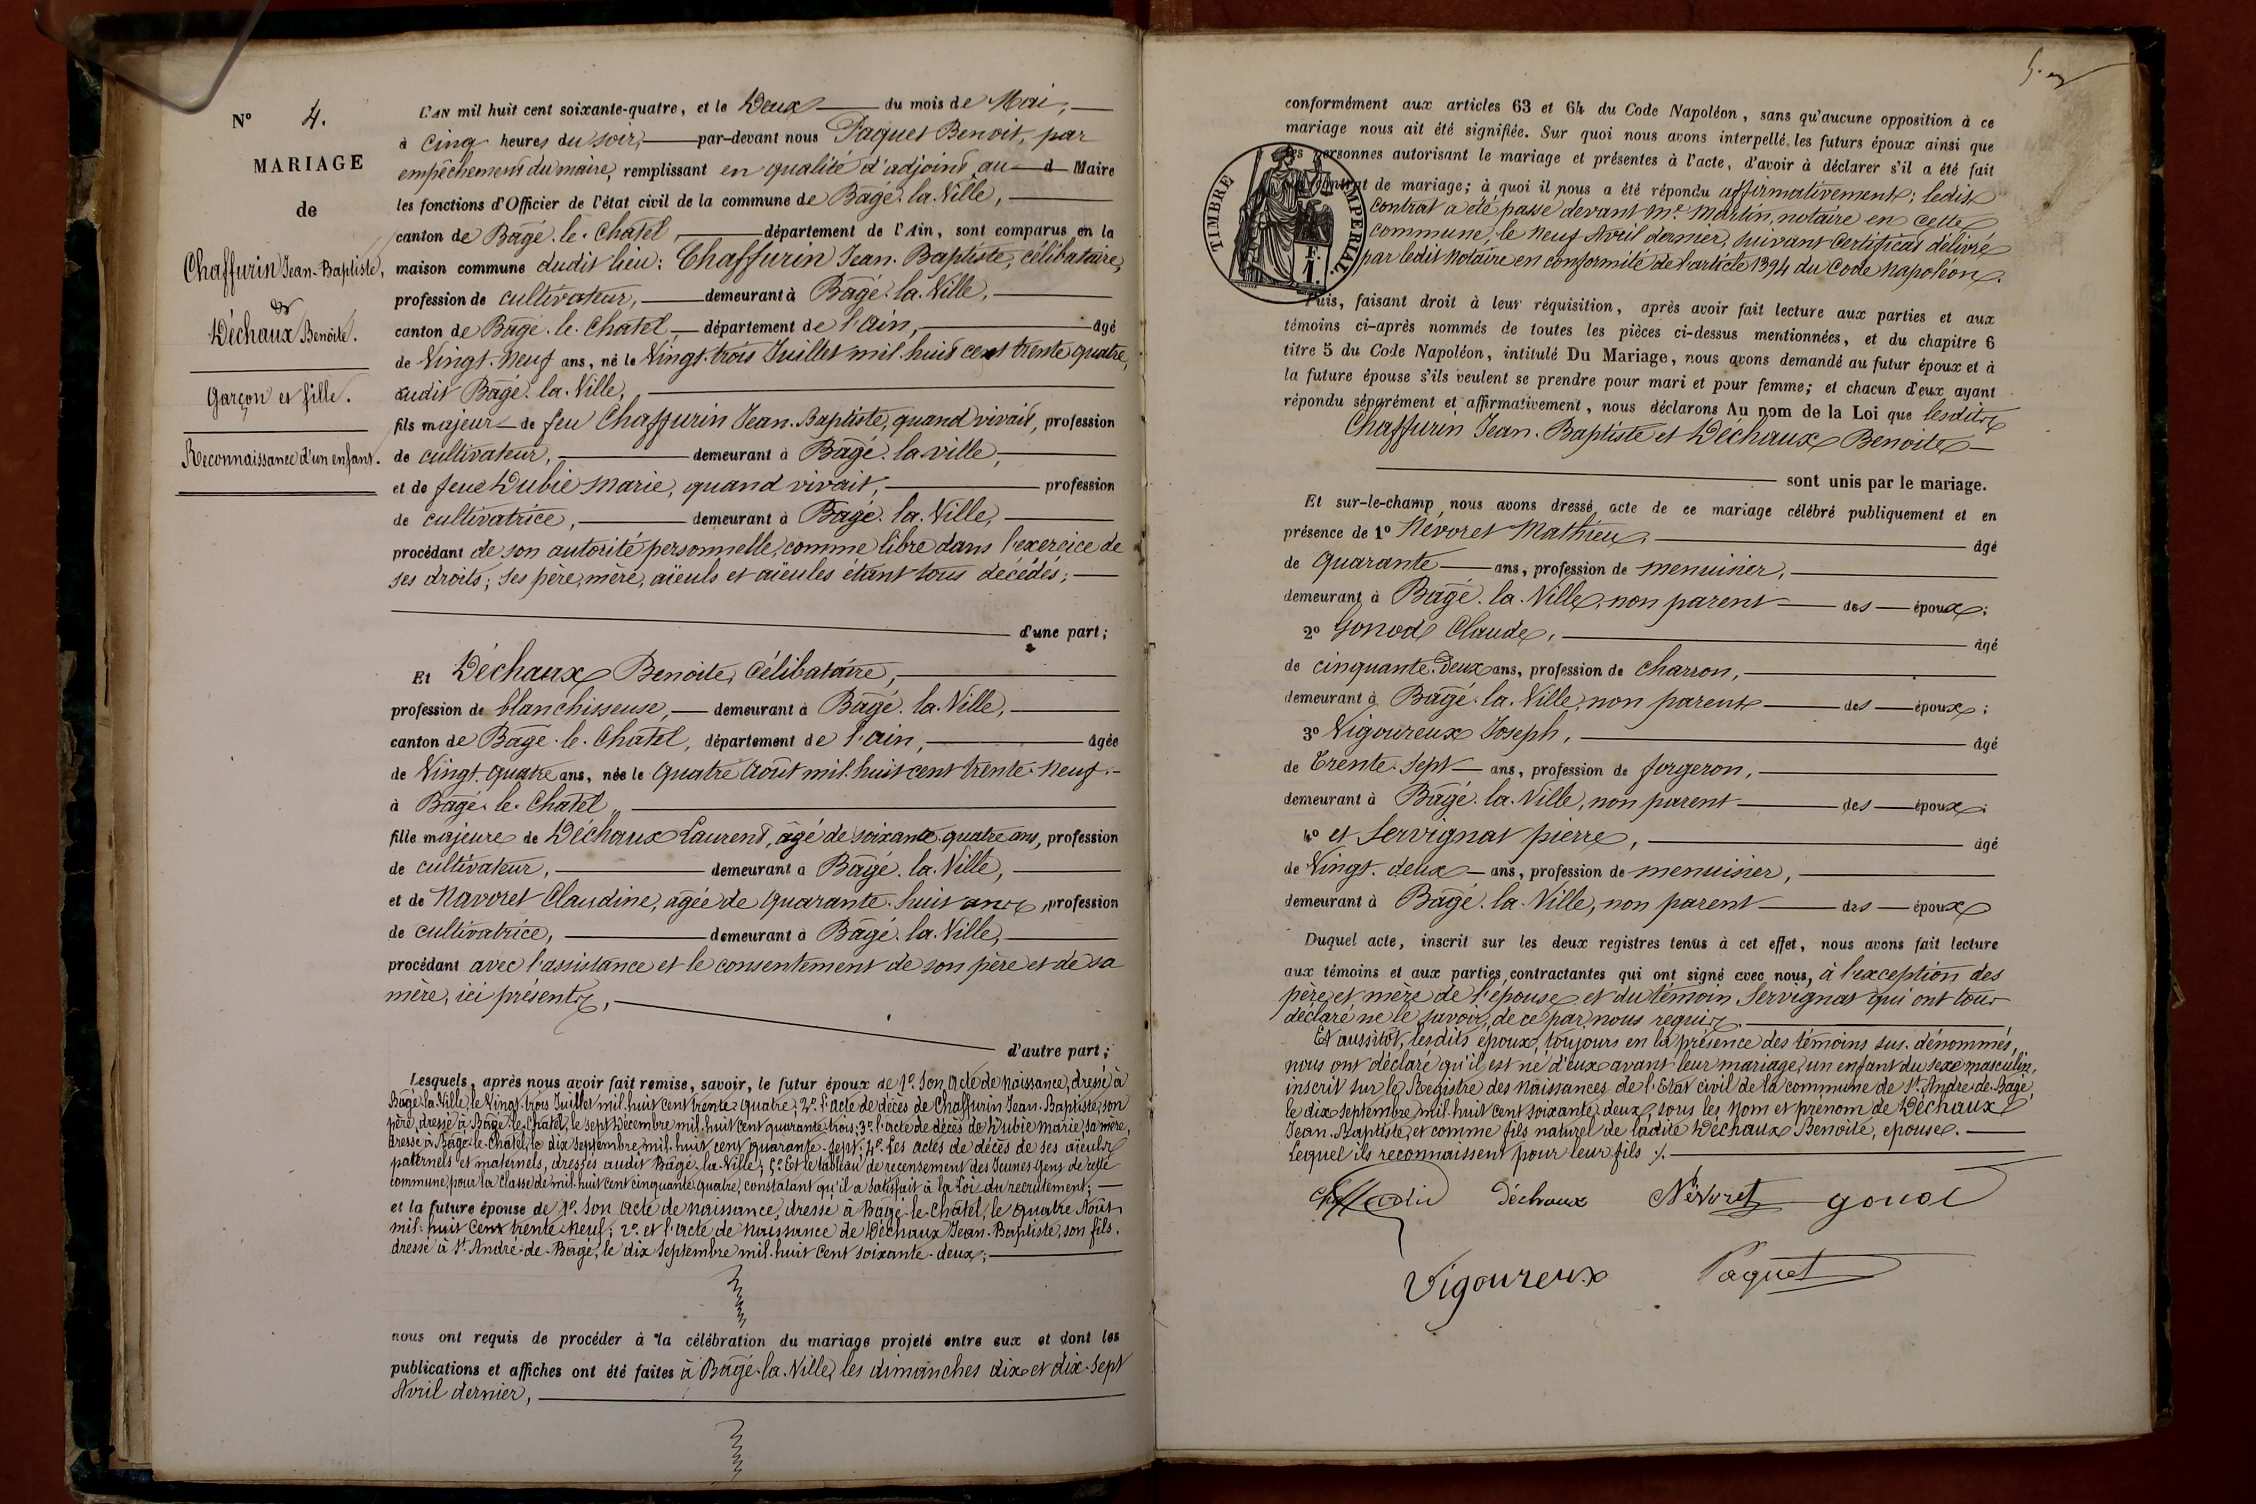 N° 4.
MARIAGE
de
Chaffurin Jean-Baptiste,
&
Déchaux Benoite.
Garçon et fille.
Reconnaissance d'un enfant.
L'AN mil huit cent soixante-quatre, et le Deux du mois de Mai,
à Cinq heures du soir, par-devant nous Paquet Benoit, par
empêchement du maire, remplissant en qualité d'adjoint au d Maire
les fonctions d'Officier de l'état civil de la commune de Bâgé-la-Ville,
canton de Bâgé-le-Chatel, département de l'Ain, sont comparus en la
maison commune dudit lieu: Chaffurin Jean-Baptiste, célibataire,
profession de cultivateur, demeurant à Bâgé-la-Ville,
canton de Bâgé-le-Chatel département de l'Ain, âgé
de Vingt-neuf ans, né le Vingt-trois Juillet mil-huit cent trente quatre,
audit Bâgé-la-Ville,
fils majeur de feu Chaffurin Jean-Baptiste, quand vivait, profession
de cultivateur, demeurant à Bâgé-la-ville,
et de feue Dubié Marie, quand vivait, profession
de cultivatrice, demeurant à Bâgé-la-Ville,
procédant de son autorité personnelle, comme libre dans l'exercice de
ses droits; ses père, mère, aïeuls et aïeules étant tous décédés;
d'une part;
Et Déchaux Benoite, Célibataire,
profession de blanchisseuse, demeurant à Bâgé-la-Ville,
canton de Bâgé-le-Chatel, département de l'ain, âgée
de Vingt-quatre ans, née le quatre Août mil-huit cent trente-neuf
à Bâgé-le-Chatel,
fille majeure de Déchaux Laurent, âgé de soixante-quatre ans, profession
de cultivateur, demeurant à Bâgé-la-Ville,
et de Navoret Claudine, âgée de quarante-huit ans, profession
de cultivatrice, demeurant à Bâgé-la-Ville,
procédant avec l'assistance et le consentement de son père et de sa
mère, ici présents,
d'autre part;
Lesquels, après nous avoir fait remise, savoir, le futur époux de 1°. Son acte de naissance, dressé à
Bâgé-la-Ville, le Vingt-trois Juillet mil-huit cent trente-quatre; 2°. l'acte de décès de Chaffurin Jean-Baptiste, son
père, dressé à Bâgé-le-Châtel, le sept Décembre mil-huit cent quarante-trois; 3°. l'acte de décès de Dubié Marie, sa mère,
dressé à Bâgé-le-Châtel, le dix septembre mil-huit cent quarante-sept; 4°. Les actes de décès de ses aïeuls
paternels et maternels, dressés audit Bâgé-la-Ville; 5°. Et le tableau de recensement des Jeunes Gens de cette
commune, pour la Classe de mil-huit cent cinquante-quatre, constatant qu'il a satisfait à la Loi du recrutement;
et la future épouse de 1°. Son acte de naissance, dressé à Bâgé-le-Châtel, le quatre Août
mil-huit cent trente-neuf; 2°. et l'acte de naissance de Déchaux Jean-Baptiste, son fils,
dressé à St. André-de-Bâgé, le dix septembre mil-huit cent soixante-deux;
nous ont requis de procéder à la célébration du mariage projeté entre eux et dont les
publications et affiches ont été faites à Bâgé-la-Ville, les dimanches dix et dix-sept
Avril dernier,
conformément aux articles 63 et 64 du Code Napoléon, sans qu'aucune opposition à ce
mariage nous ait été signifiée. Sur quoi nous avons interpellé les futurs époux ainsi que
les personnes autorisant le mariage et présentes à l'acte, d'avoir à déclarer s'il a été fait
contrat de mariage; à quoi il nous a été répondu affirmativement; ledit
Contrat a été passé devant Me. Martin, notaire en cette
commune, le neuf Avril dernier, suivant Certificat délivré
par ledit notaire en conformité de l'article 1394 du Code Napoléon.
TIMBRE IMPERIAL
1 F.
Puis, faisant droit à leur réquisition, après avoir fait lecture aux parties et aux
témoins ci-après nommés de toutes les pièces ci-dessus mentionnées, et du chapitre 6
titre 5 du Code Napoléon, intitulé Du Mariage, nous avons demandé au futur époux et à
la future épouse s'ils veulent se prendre pour mari et pour femme; et chacun d'eux ayant
répondu séparément et affirmativement, nous déclarons Au nom de la Loi que lesdits
Chaffurin Jean-Baptiste et Déchaux Benoite
sont unis par le mariage.
Et sur-le-champ nous avons dressé acte de ce mariage célébré publiquement et en
présence de 1° Névoret Mathieu, âgé
de Quarante ans, profession de menuisier,
demeurant à Bâgé-la-Ville, non parent des époux;
2° Gonod Claude, âgé
de cinquante-deux ans, profession de Charron,
demeurant à Bâgé-la-Ville, non parent des époux;
3° Vigoureux Joseph, âgé
de Trente-sept ans, profession de forgeron,
demeurant à Bâgé-la-Ville, non parent des époux;
4° et Servignat pierre, âgé
de Vingt-deux ans, profession de menuisier,
demeurant à Bâgé-la-Ville, non parent des époux
Duquel acte, inscrit sur les deux registres tenus à cet effet, nous avons fait lecture
aux témoins et aux parties contractantes qui ont signé avec nous, à l'exception des
père et mère de l'épouse et du témoin Servignat qui ont tous
déclaré ne le savoir, de ce par nous requis.
Et aussitôt, lesdits époux, toujours en la présence des témoins sus-dénommés,
nous ont déclaré qu'il est né d'eux avant leur mariage, un enfant du sexe masculin,
inscrit sur le Registre des Naissances de l'Etat civil de la commune de St. André-de-Bâgé,
le dix septembre mil-huit cent soixante-deux, sous les Nom et prénom de Déchaux
Jean-Baptiste, et comme fils naturel de ladite Déchaux Benoite, épouse.
Lequel ils reconnaissent pour leur fils ./.
Déchaux Névoret gonod
Vigoureux Paquet